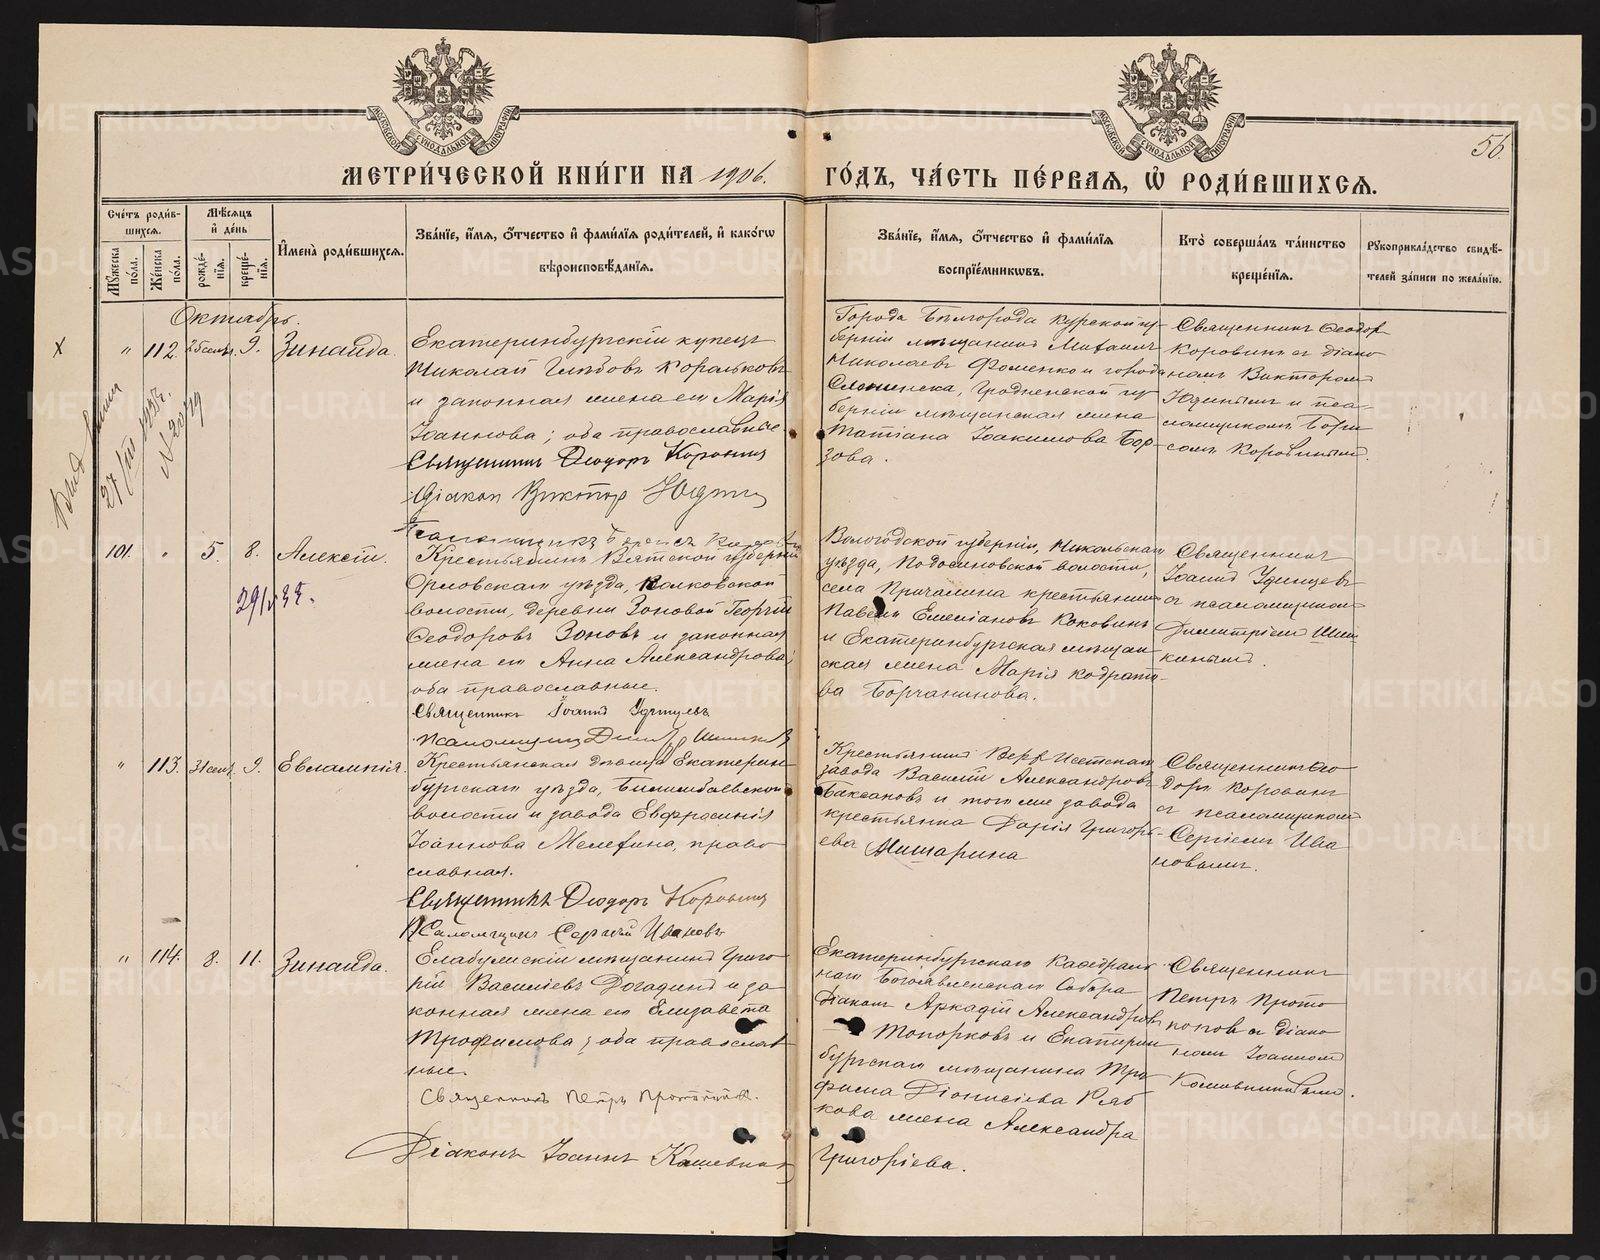 МЕТРИ́ЧЕСКОЙ КНИ́ГИ НА 1906.
ГО́ДЪ, ЧА́СТЬ ПЕ́РВАЯ, Ѡ РОДИ́ВШИХСѦ.
56.
Сче́тъ роди́в-
шихсѧ.
Мꙋ́жеска по́ла.
Же́нска по́ла.
Мѣ́сѧцъ
и҆ де́нь
рожде́-
нїѧ.
креще́-
нїѧ.
И҆мена̀ роди́вшихсѧ.
Зва́нїе, и҆́мѧ, ѻ҆́тчество и҆ фами́лїѧ роди́телей, и҆ како́гѡ
вѣроисповѣ́данїѧ.
Зва́нїе, и҆́мѧ, ѻ҆́тчество и҆ фами́лїѧ
воспрїе́мникѡвъ.
Кто̀ соверша́лъ та́инство
креще́нїѧ.
Рꙋкоприкла́дство свидѣ́-
телей за́писи по жела́нїю.
Октябрь.
" 112. 9. Зинаида.
Екатеринбургскій купецъ
Николай Глѣбовъ Корольковъ
и законная жена его Марія
Іоаннова; оба православные
Священникъ Ѳеодоръ Коровинъ
Діаконъ Викторъ Юдинъ
Города Бѣлгорода Курской гу-
берніи мѣщанинъ Михаилъ
Николаевъ Фоменко и города
Слонимска, Гродненской гу-
берніи мѣщанская жена
Татіана Іоакимова Бор-
зова.
Священникъ Ѳеодоръ
Коровинъ съ діако-
номъ Викторомъ
Юдинымъ и пса-
ломщикомъ Бори-
сомъ Коровинымъ.
101. " 5. 8. Алексій.
29/V 35.
Крестьянинъ Вятской губерніи
Орловскаго уѣзда,
волости, деревни Зоновой Георгій
Ѳеодоровъ Зоновъ и законная
жена его Анна Александрова;
оба православные.
Священникъ Іоаннъ Удинцевъ
Вологодской губерніи, Никольскаго
уѣзда, Подосиновской волости,
села крестьянинъ
Павелъ Емеліановъ Коковинъ
и Екатеринбургская мѣщан-
ская жена Марія Кодрато-
ва Борчанинова.
Священникъ
Іоаннъ Удинцевъ
съ псаломщикомъ
Димитріемъ Шиш-
кинымъ.
" 113. 9. Евлампія.
Крестьянская дѣвица Екатерин-
бургскаго уѣзда, Билимбаевской
волости и завода Евфросинія
Іоаннова Мелехина, право-
славная.
Священникъ Ѳеодоръ Коровинъ
Псаломщикъ Сергій Ивановъ
Крестьянинъ Верх Исетскаго
завода Василій Александровъ
Баксановъ и того же завода
крестьянка Дарія Григорь-
ева Мишарина
Священникъ Ѳео-
доръ Коровинъ
съ псаломщикомъ
Сергіемъ Ива-
новымъ.
" 114. 8. 11. Зинаида.
Елабужскій мѣщанинъ Григо-
рій Васильевъ Догадинъ и за-
конная жена его Елизавета
Трофимова; оба православ-
ные.
Священникъ Петръ Протопоповъ.
Діаконъ Іоаннъ
Екатеринбургскаго Каѳедраль-
наго Богоявленскаго Собора
діаконъ Аркадій Александровъ
Топорковъ и Екатерин-
бургскаго мѣщанина Тро-
фима Діонисіева Ряб-
кова жена Александра
Григоріева.
Священникъ
Петръ Прото-
поповъ съ діако-
номъ Іоанномъ